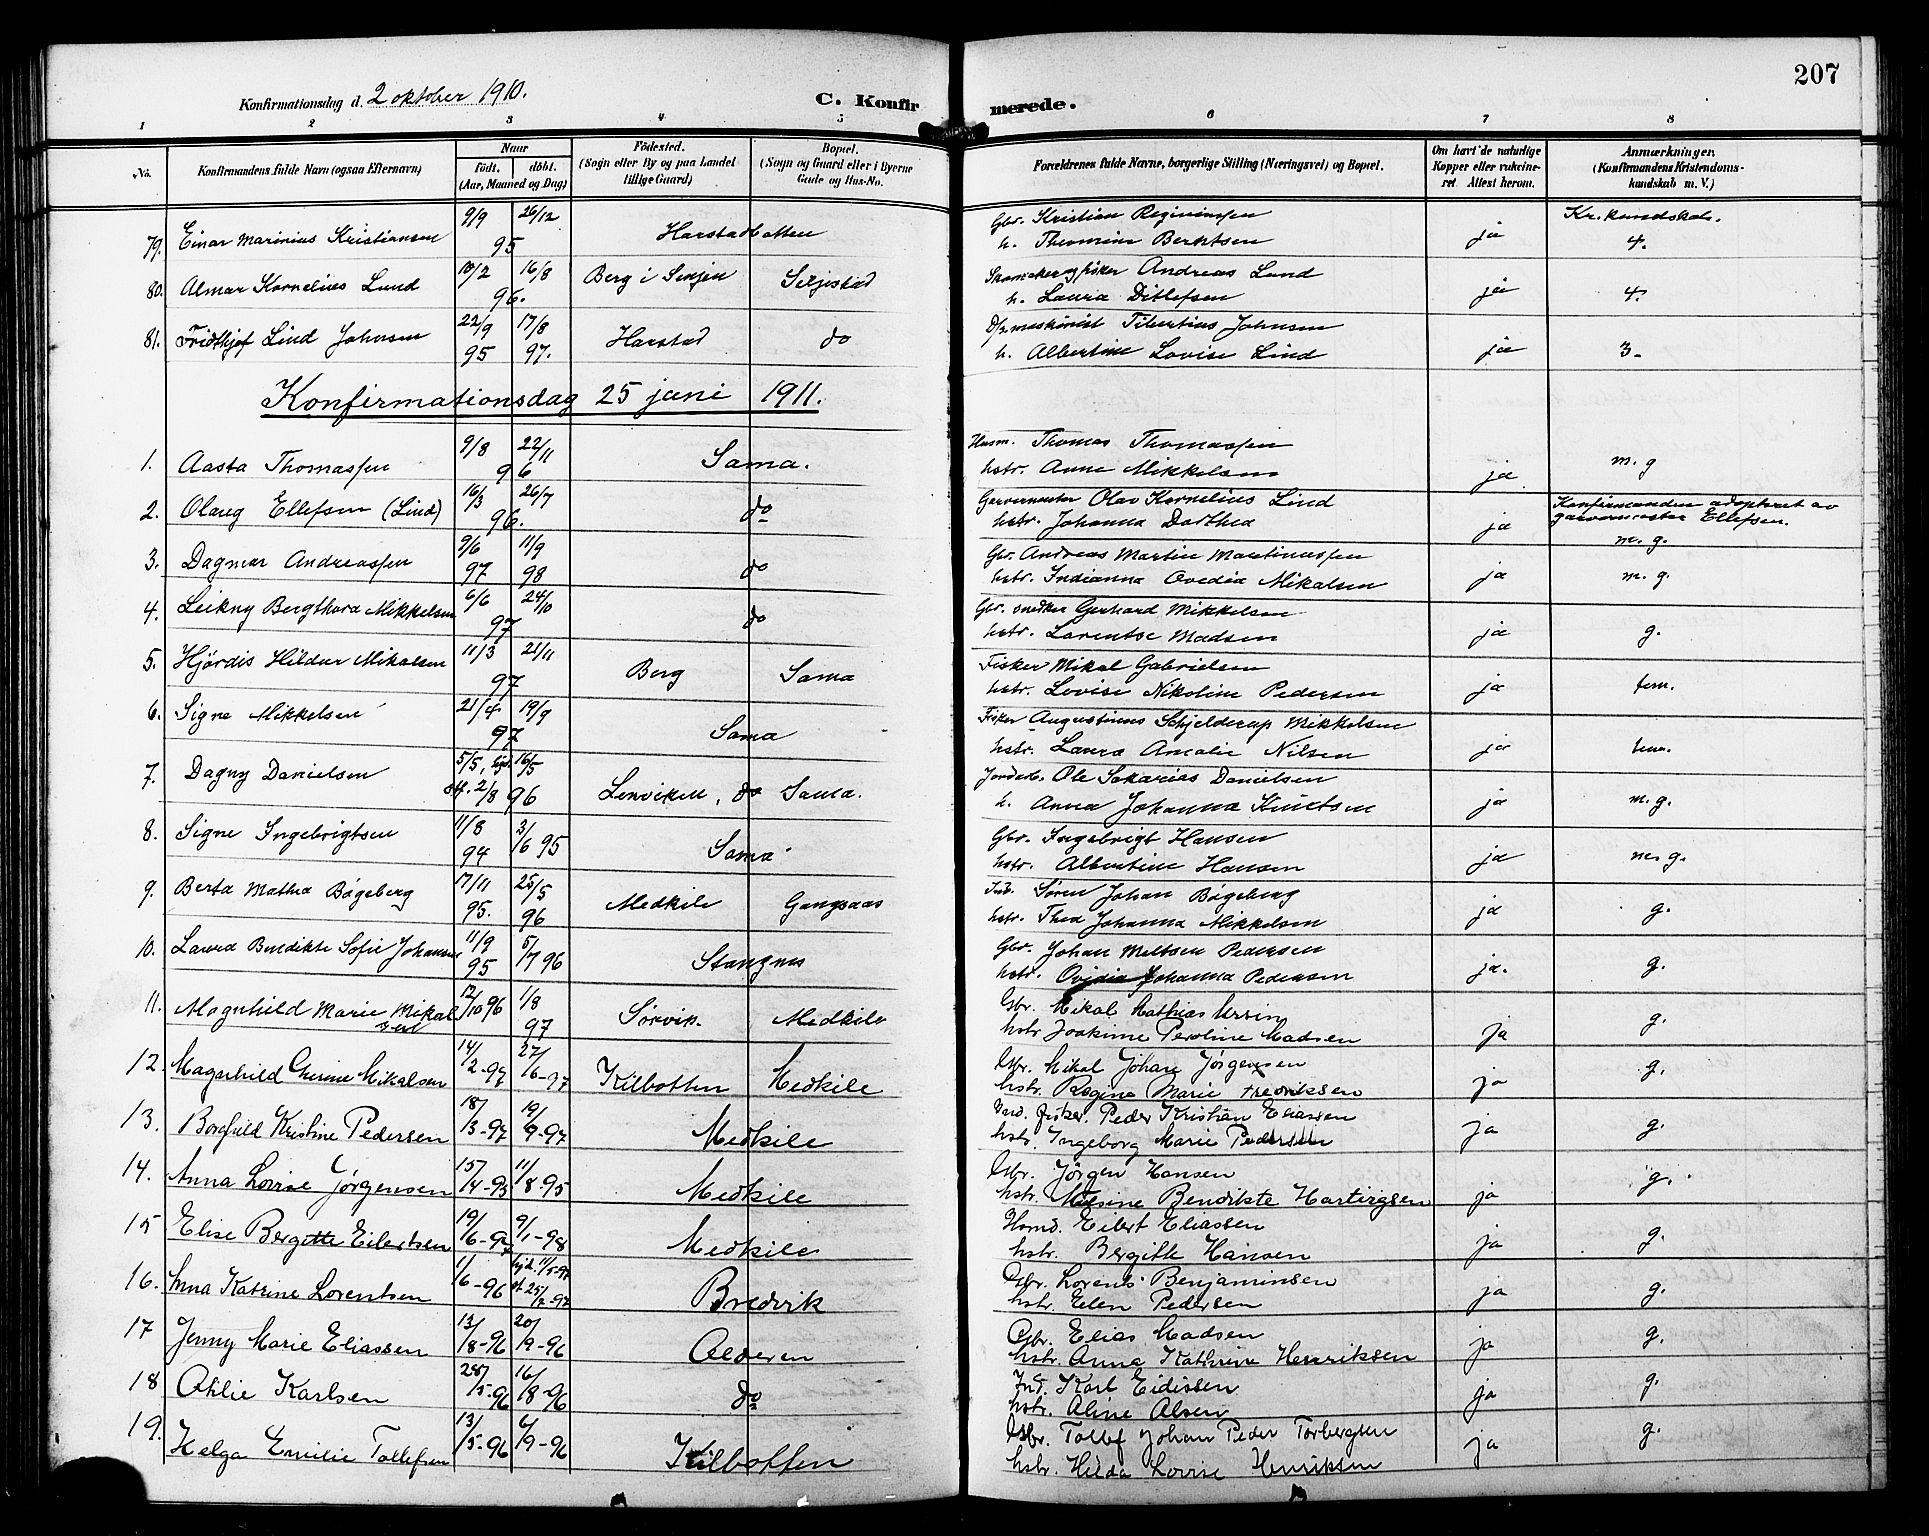 207
Konfirmationsdag d. 2 oktober 1910.
C. Konfirmerede.
1 2 3 4 5 6 7 8
No. Konfirmandens fulde Navn (ogsaa Efternavn) Naar født. døbt. (Aar, Maaned og Dag) Fødested. (Sogn eller By og paa Landet tillige Gaard) Bopæl. (Sogn og Gaard eller i Byerne Gade og Hus-No. Forældrenes fulde Navne, borgerlige Stilling (Næringsvei) og Bopæl. Om havt de naturlige Kopper eller vakcineret. Attest herom. Anmærkninger, (Konfirmandens Kristendomskundskab m. V.)
79. Einar Marinius Kristiansen 9/9 26/12 95 Harstadbotten Gbr. Kristian h. Berntsen ja Kr. kundskab. 4.
80. Almar Kornelius Lund 10/2 16/8 96. Berg i Senjen Seljestad Skomaker og fisker Andreas Lund h. Laura Ditlefsen ja 4.
81. Fridthjof Lind Johnsen 22/9 95 17/8 97. Harstad do D/s maskinist Tibertius Johnsen h. Albertine Lovise Lind ja 3-
Konfirmationsdag 25 juni 1911.
1. Aasta Thomassen 9/8 22/11 96 Sama. Husm. Thomas Thomassen hstr. Anne Mikkelsen ja m. g
2. Olaug Ellefsen (Lind) 16/3 26/7 96. do Garvermester Olav Kornelius Lind hstr. Johanna Dorthea ja Konfirmanden adopteret av garvermester Ellefsen. m. g.
3. Dagmar Andreassen 9/6 97 11/9 98 do Gbr. Andreas Martin Martinussen hstr. Indianna Ovedia Mikalsen ja m. g.
4. Leikny Bergthora Mikkelsen 6/6 24/10 97 do Gbr. snedker Gerhard Mikkelsen hstr. Larentse Madsen ja g.
5. Hjørdis Hildur Mikalsen 11/3 21/11 97 Berg Sama Fisker Mikal Gabrielsen hstr. Lovise Nikoline Pedersen ja tem.
6. Signe Mikkelsen 21/4 19/9 97 Sama Fisker Augustinus Schjelderup Mikkelsen hstr. Laura Amalie Nilsen ja tem.
7. Dagny Danielsen 5/5, hjd. 16/5 st. 2/8 96 Lenviken, do Sama. Jordarb. Ole Sakarias Danielsen h. Anna Johanna Knutsen ja m. g.
8. Signe Ingebrigtsen 11/8 94 3/6 95 Sama Gbr. Ingebrigt Hansen hstr. Albertine Hansen ja m. g.
9. Berta Mathea Bøgeberg 17/11 95. 25/5 96 Medkile Gangsaas Inb. Søren Johan Bøgeberg hstr. Thea Johanna Mikkelsen ja g.
10. Laura Bendikte Sofie Johansen 11/9 95 5/7 96 Stangnes Gbr. Johan Meltsen Pedersen hstr. Ovidia Johanna Pedersen ja. g.
11. Magnhild Marie Mikal 12/10 96 1/8 97 Sørvik. Medkile Gbr. Mikal Mathias Ursin hstr. Joakime Peroline Madsen ja g.
12. Magnhild Mikalsen 14/2-97 27/6-97 Kilbotten Medkile Gbr. Mikal Johan Jørgensen hstr. Regine Marie Fredriksen ja g.
13. Borghild Kristine Pedersen 18/3-97 19/9-97 Medkile Ind. fisker. Peder Kristian Eliassen hstr. Ingeborg Marie Pedersen ja g.
14. Anna Lovise Jørgensen 15/4-95 11/8-95 Medkile Gbr. Jørgen Hansen hstr. Bendikte Hartvigsen ja g.
15 Elise Bergitte Eilertsen 19/6-97 9/1-98 Medkile Husmd. Eilert Eliassen hstr. Bergitte Hansen ja g.
16. Anna Katrine Lorentsen 1/6-96 hjd. st. 25/7-97 Bredvik Gbr. Lorents Benjaminsen hstr. Elen Pedersen ja g.
17 Jenny Marie Eliassen 13/8-96 20/9-96 Aldersen Gbr. Elias Madsen hstr. Anna Kathrine Henriksen ja g.
18 Otilie Karlsen 28/5-96 16/8-96 do Ind. Karl Eidissen hstr. Aline Olsen ja g.
19. Helga Emilie Tollefsen 13/5-96 6/9-96 Kilbotten Gbr. Tollef Johan Peder Torbergsen hstr. Hilda Lovise Henriksen ja g.